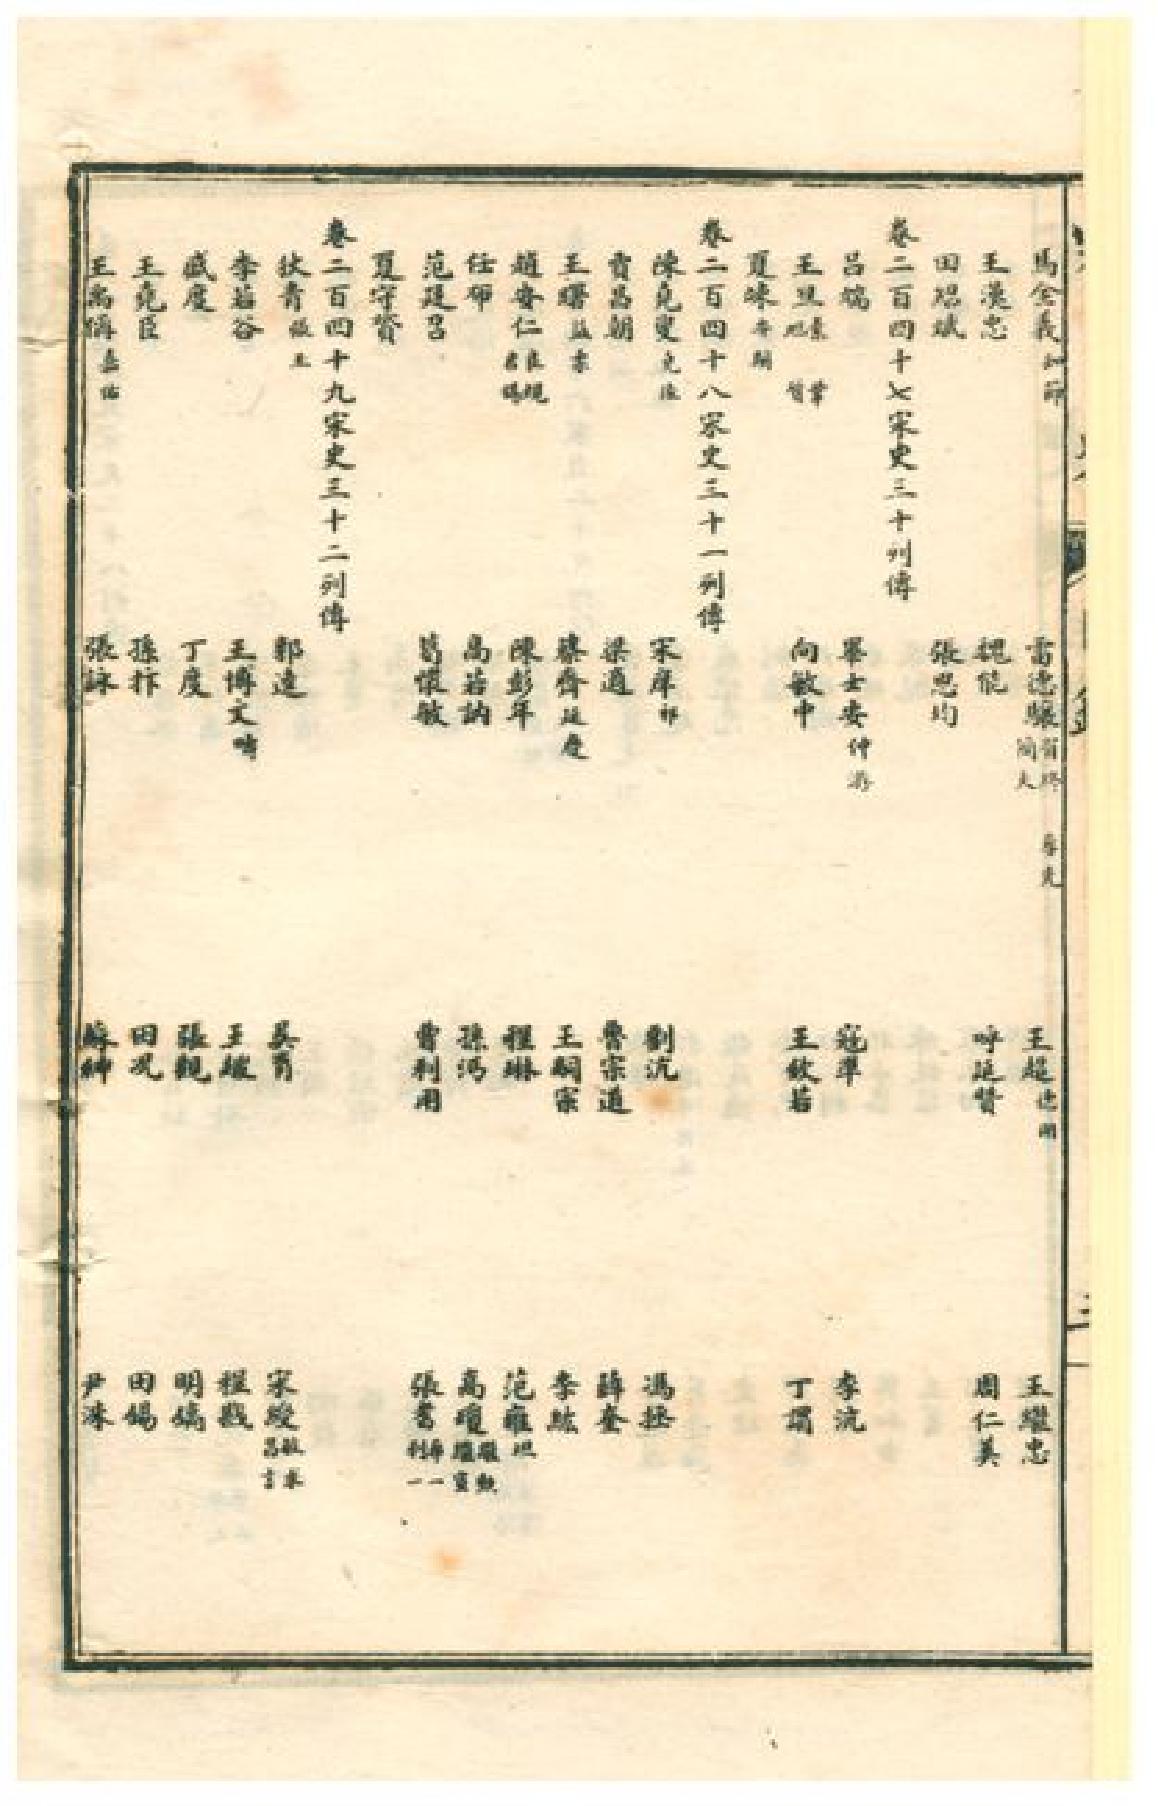 馬全義知節 雷德驤有終簡夫孝先 王超德用 王繼忠
王漢忠 魏能 呼延贊 周仁美
田紹斌 張思均
卷二百四十七宋史三十列傳
呂端 畢士安仲游 寇準 李沆
王旦素 鞏旭 質 向敏中 王欽若 丁謂
夏竦安期
卷二百四十八宋史三十一列傳
陳堯叟堯佐 宋庠祁 劉沆 馮拯
賈昌朝 梁適 魯宗道 薛奎
王曙益柔 蔡齊延慶 王嗣宗 李紘
趙安仁良規君錫 陳彭年 程琳 范雍坦
任布 高若訥 孫沔 高瓊繼勲繼宣
范廷召 葛懷敏 曹利用 張耆希一利一
夏守贇
卷二百四十九宋史三十二列傳
狄青張玉 郭逵 吳育 宋綬敏求昌言
李若谷 王博文疇 王鬷 程戡
戚度 丁度 張觀 明鎬
王堯臣 孫抃 田況 田錫
王禹偁嘉祐 張詠 蘇紳 尹洙